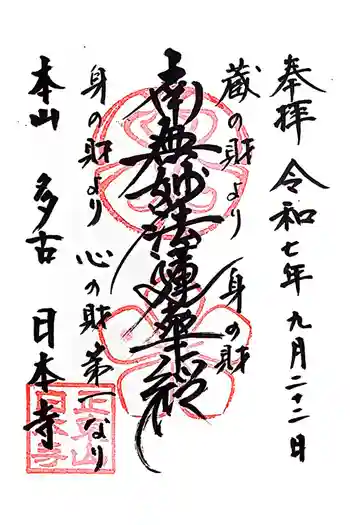 奉拝 令和七年九月二十二日
蔵の財より 身の財
南無妙法蓮華経
身の財より 心の財第一なり
本山 多古 日本寺
正東山
日本寺